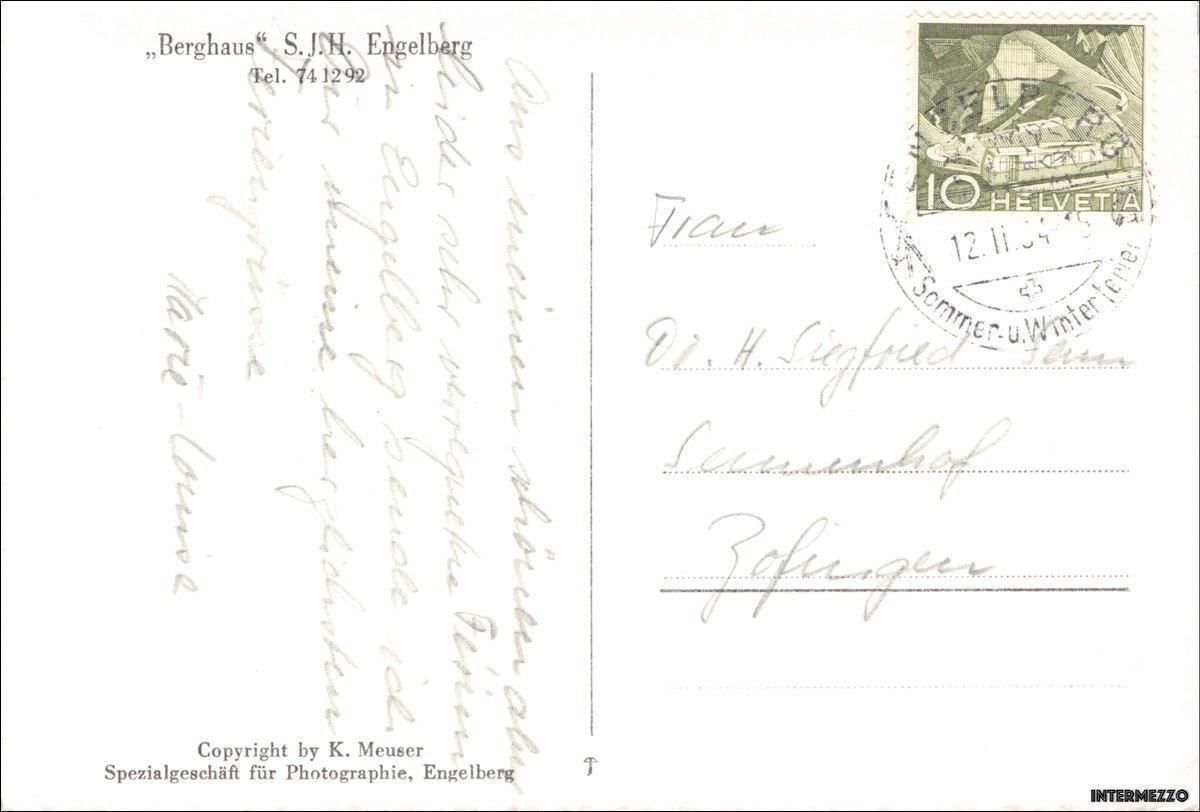 „Berghaus“ S.J.H. Engelberg
Tel. 74 12 92
Aus meinen schönen aber
leider sehr verregneten Ferien
in Engelberg sende ich
Dir meine herzlichsten
Feriengrüsse
Marie-Louise
Copyright by K. Meuser
Spezialgeschäft für Photographie, Engelberg
10 HELVETIA
ENGELBERG
12.II.54-18
Sommer-u.Winterferien
Frau
Dr. H. Siegfried Senn
Sennenhof
Zofingen
INTERMEZZO